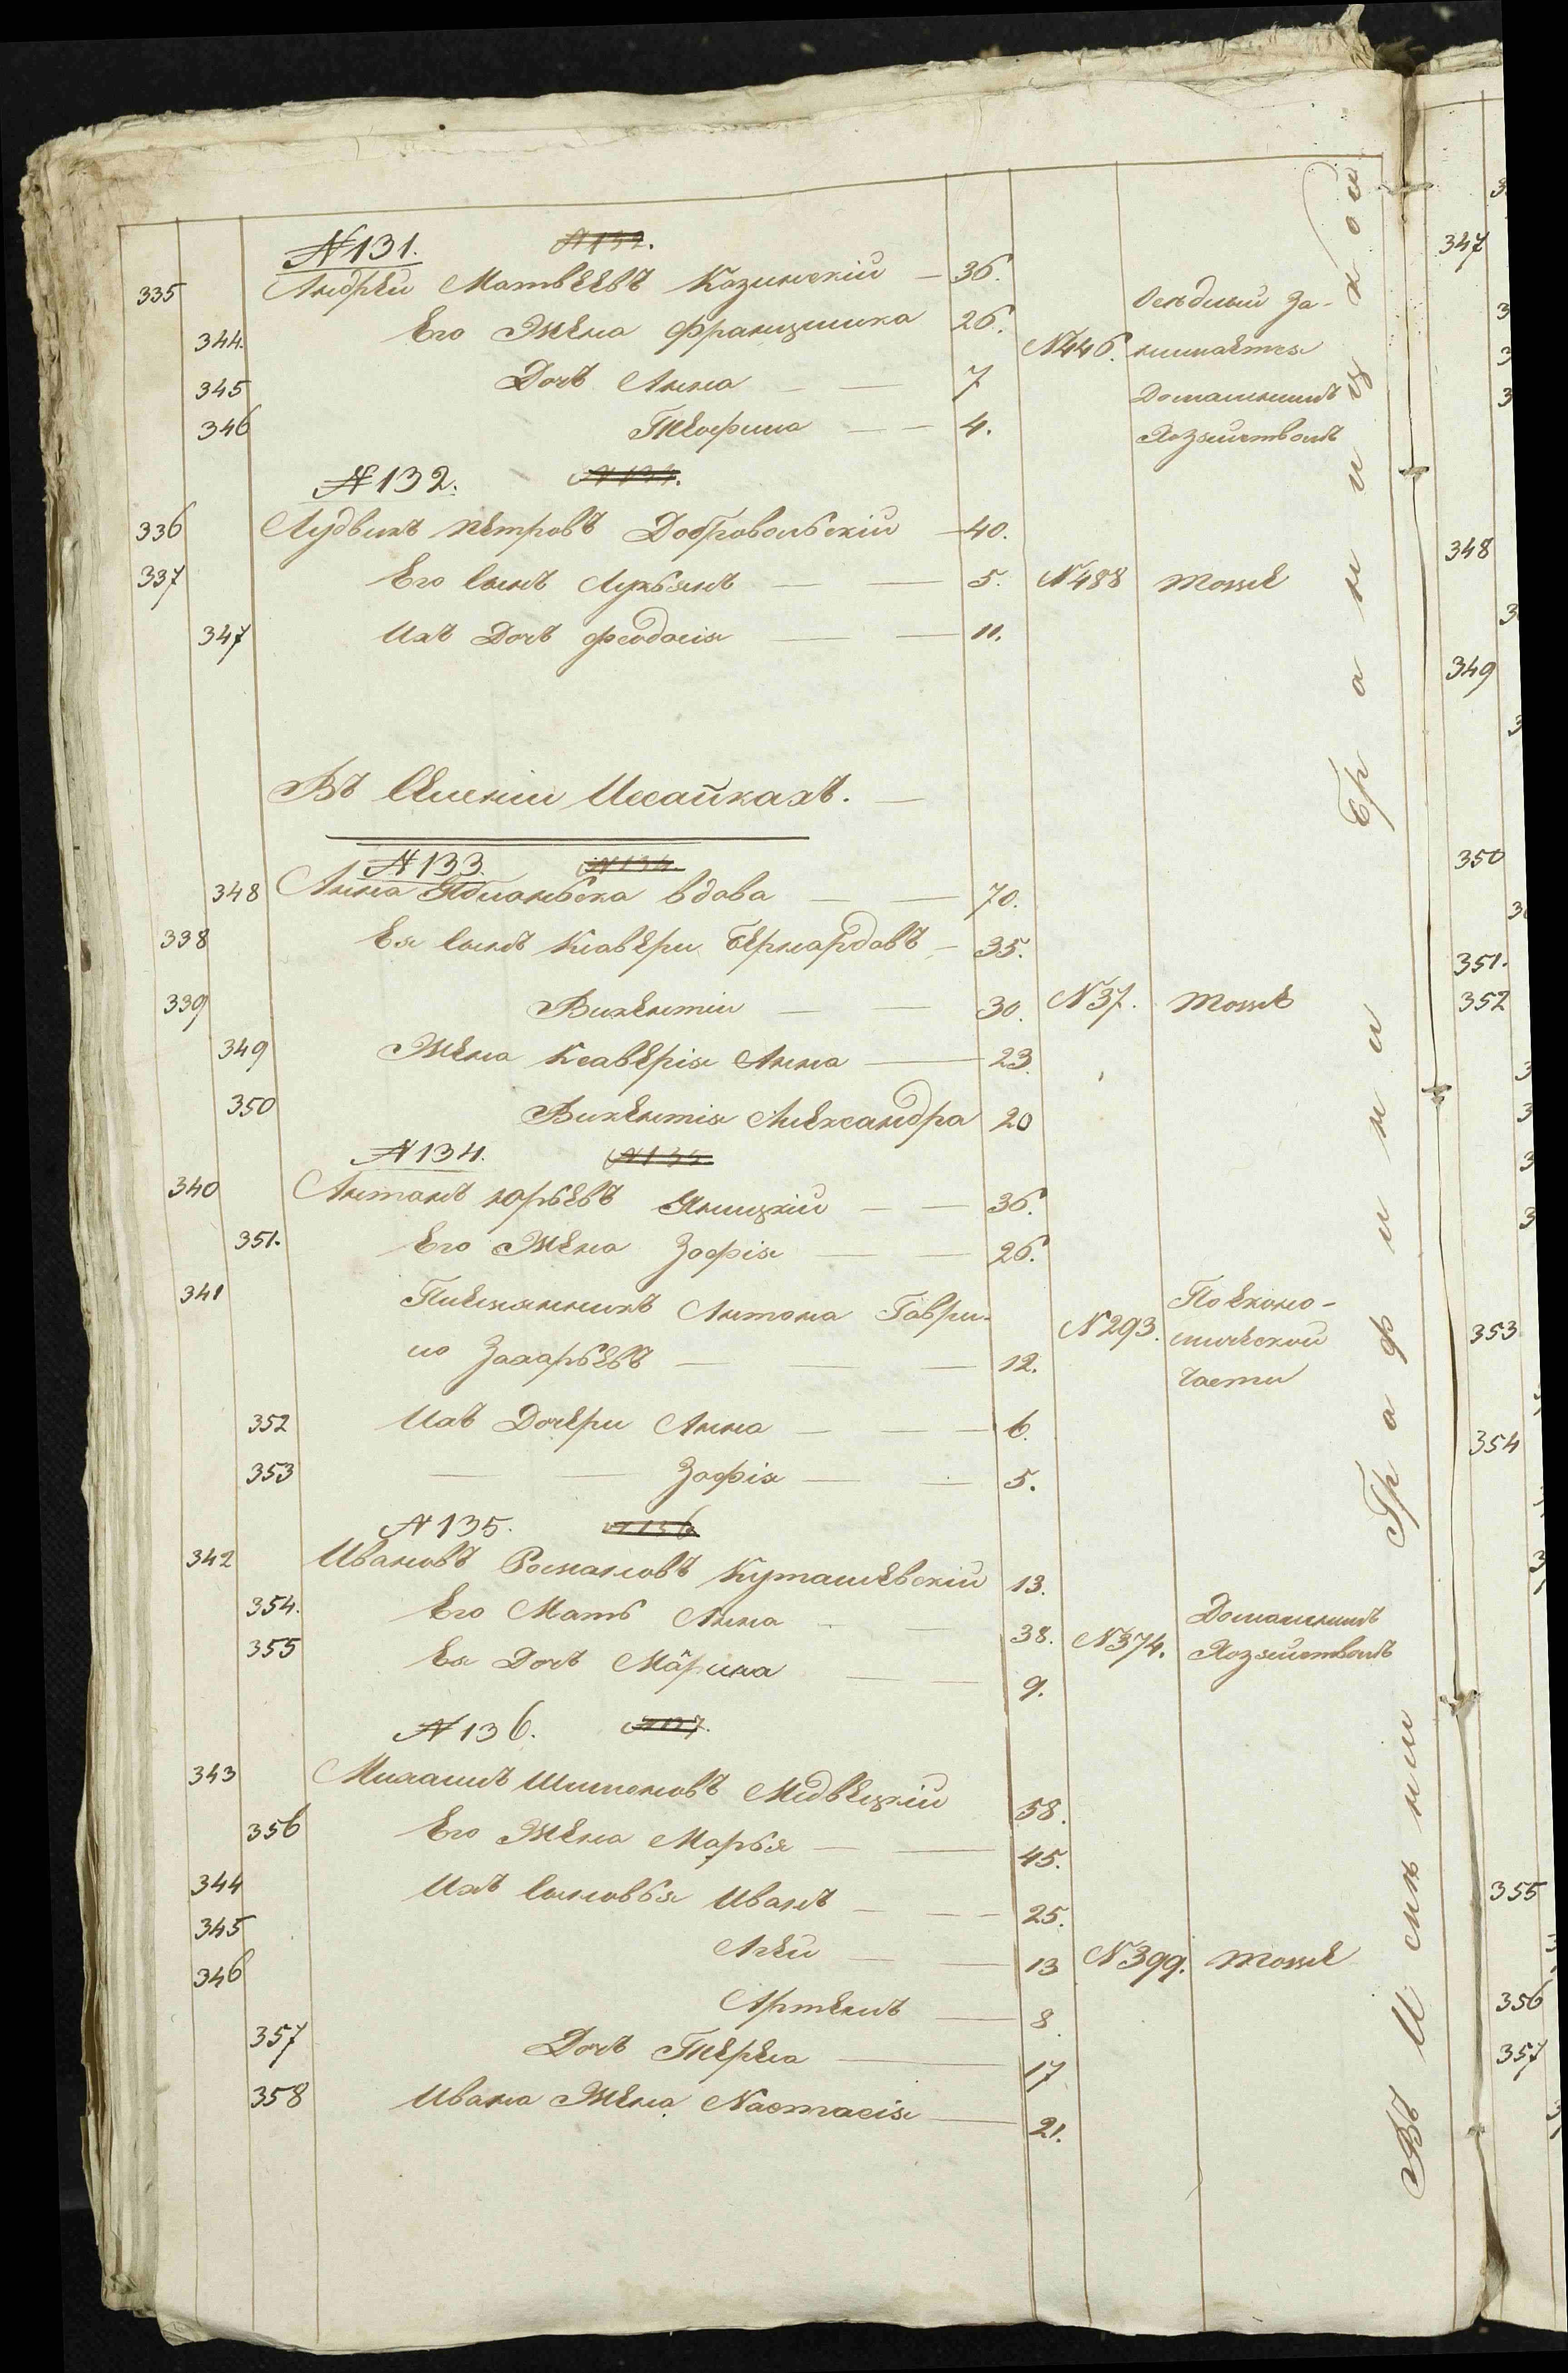 № 131. № 132.
335 Андрей Матвеевъ Козинскій — 36.
344. Его Жена Францишка 26. № 446. Оседлый За-
нимается
345 Дочь Анна — — 7 Домашнимъ
346 Теофила — — 4. Хозяйствомъ
№ 132. № 133.
336 Лудвикъ Петровъ Добровольскій — 40.
337 Его Сынъ Лукьянъ — — 5. № 488 тоже
347 Ихъ Дочь Феодосія — — 11.
Въ Селеніи Исайкахъ. —
№ 133. № 134.
348 Анна вдова — — 70.
338 Ея Сынъ Ксавери Бернардовъ — 35.
339 Викентій — — 30. № 37. тоже
349 Жена Ксаверія Анна — 23.
350 Викентія Александра 20
№ 134. № 135
340 Антонъ Юрьевъ Яницкій — — 36.
351. Его Жена Зофія — — 26.
341 Племянникъ Антона Гаври-
ло Захарьевъ — — — 12. № 293. По Еконо-
мической
части
352 Ихъ Дочери Анна — — — 6.
353 — — Зофія — — 5.
№ 135. № 136
342 Ивановъ Романовъ Куташевскій 13.
354. Его Мать Анна — — 38. № 374. Домашнимъ
Хозяйствомъ
355 Ея Дочь Марина — — 9.
№ 136. № 137.
343 Михаилъ Шимоновъ Медвецкій 58.
356 Его Жена Марья — — 45.
344 Ихъ Сыновья Иванъ — — — 25.
345 — — 13 № 399. тоже
346 Артемъ — 8.
357 Дочь Тереса — 17
358 Ивана Жена Настасія — 21.
Въ Имѣніи Графини Браницкой
347
348
349
350
351.
352
353
354
355
356
357